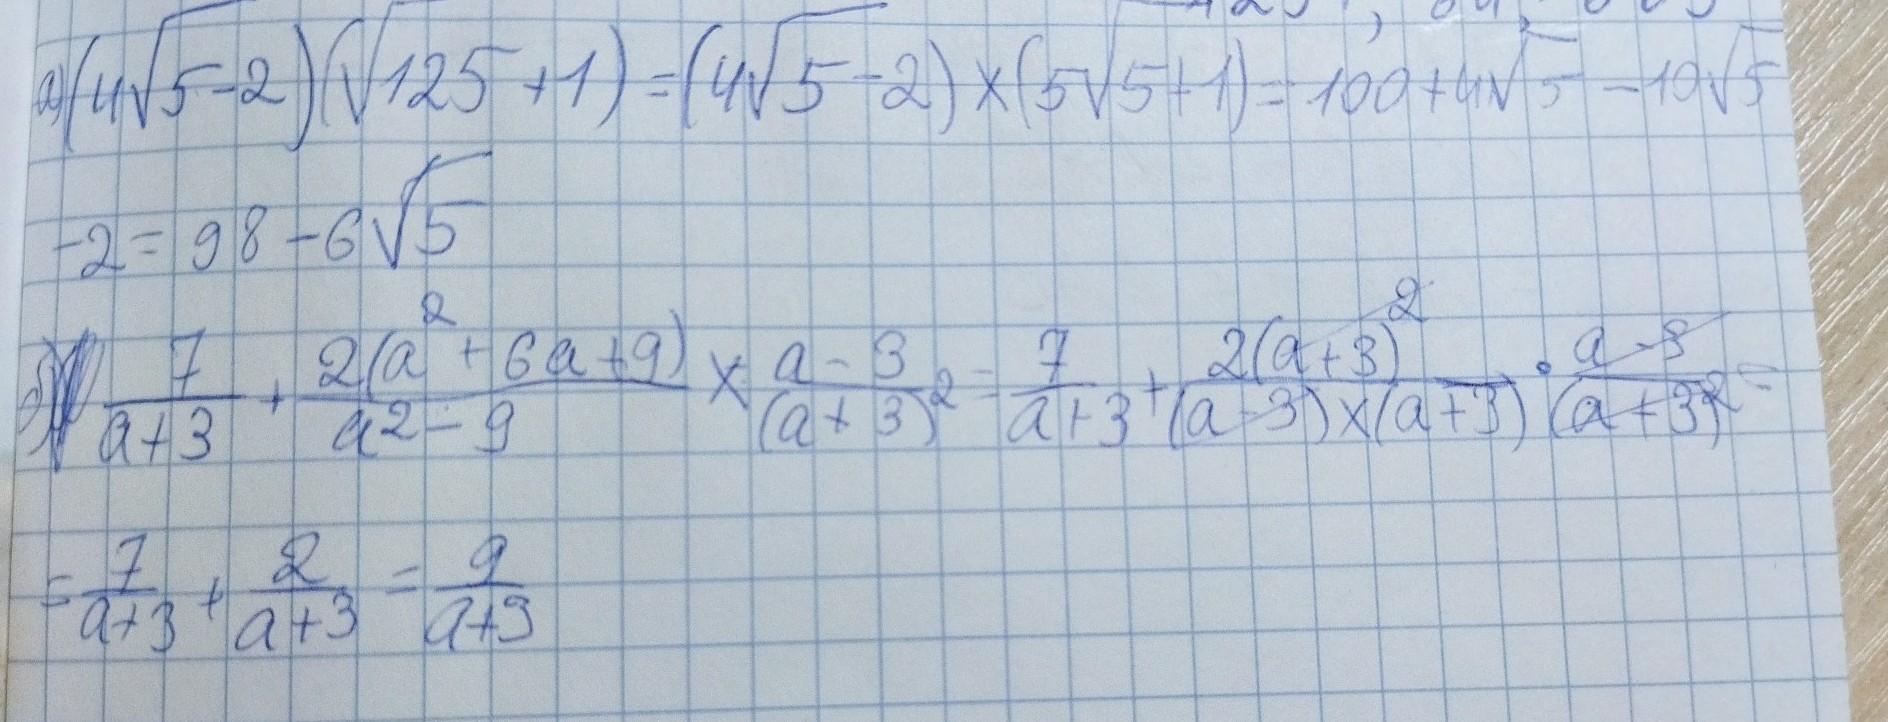 а) (4√5-2)(√125+1)=(4√5-2)×(5√5+1)=100+4√5-10√5
-2=98-6√5
б) 7/(a+3) + 2(a²+6a+9)/(a2-9) × (a-3)/(a+3)² = 7/(a+3) + 2(a+3)²/((a-3)×(a+3)) · (a-3)/(a+3)² =
= 7/(a+3) + 2/(a+3) = 9/(a+3)